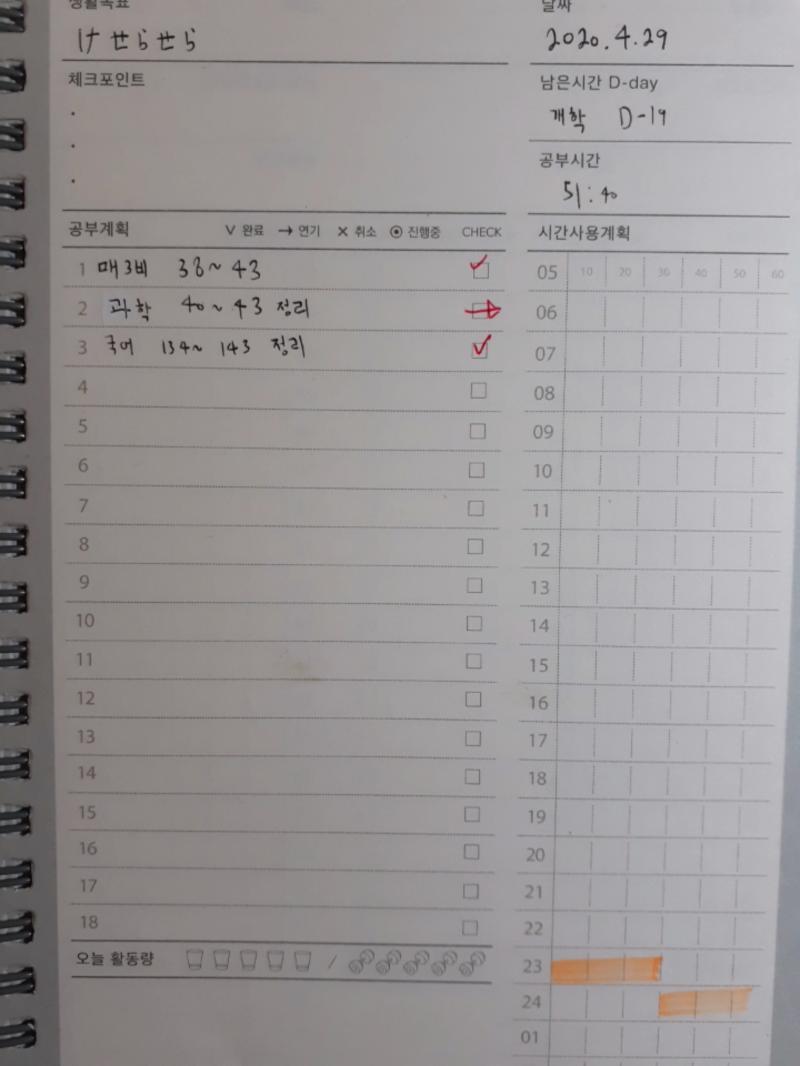 생활목표
けせらせら
날짜
2020.4.29
체크포인트
남은시간 D-day
개학 D-19
공부시간
51:40
공부계획 V 완료 → 연기 X 취소 ⦿ 진행중 CHECK
시간사용계획
1 매3비 38~43
2 과학 40~43 정리
3 국어 134~143 정리
4
5
6
7
8
9
10
11
12
13
14
15
16
17
18
오늘 활동량 /
05 10 20 30 40 50 60
06
07
08
09
10
11
12
13
14
15
16
17
18
19
20
21
22
23
24
01